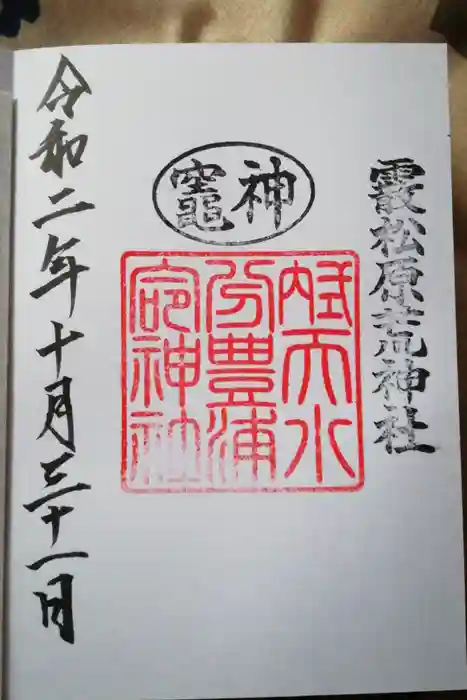 霰松原荒神社
神竈
天水
分豊浦
命神社
令和二年十月三十一日